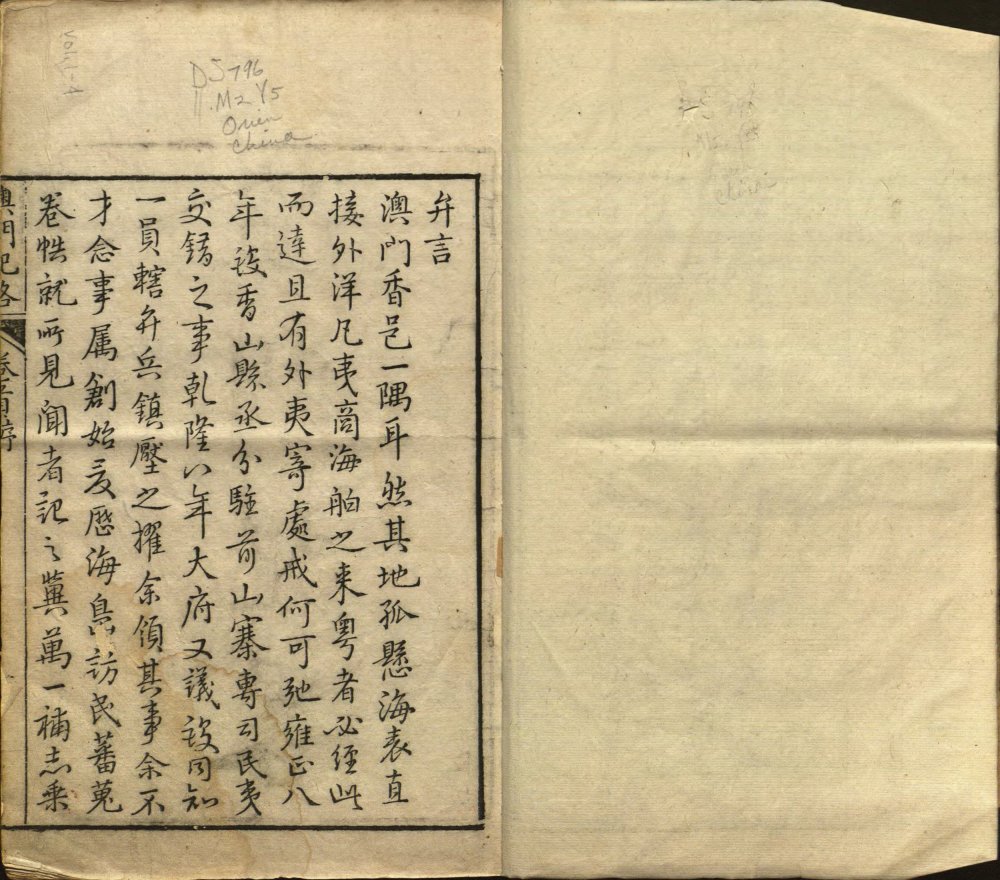 Vol. 1-4
DS796
.M2Y5
Orien
China
弁言
澳門香邑一隅耳然其地孤懸海表直
接外洋凡夷商海舶之来粤者必經此
而達且有外夷寄處戒何可弛雍正八
年設香山縣丞分駐前山寨專司民夷
交錯之事乾隆八年大府又議設同知
一員轄弁兵鎮壓之擢余領其事余不
才念事属創始爰歷海島訪民蕃蒐
卷帙就所見聞者記之冀萬一補志乗
澳門記略 卷首序